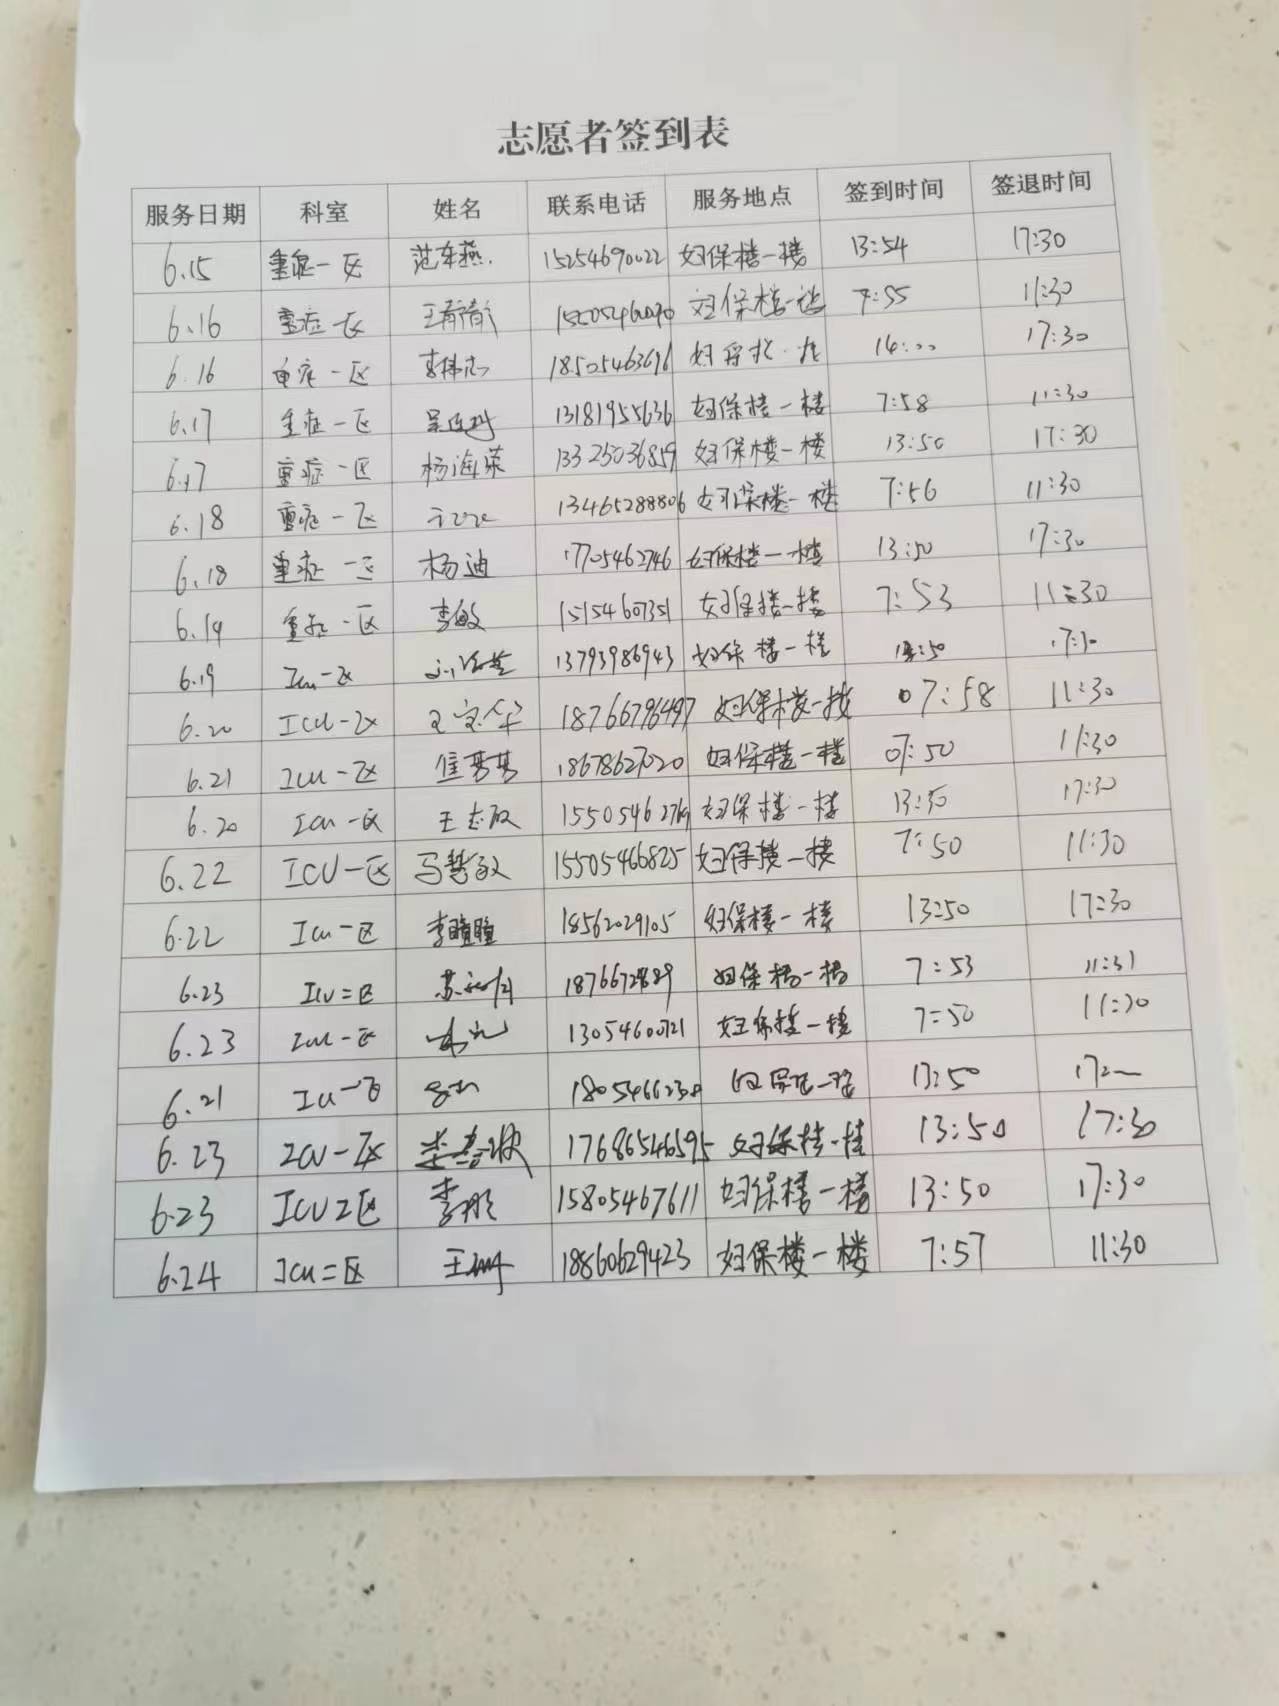 志愿者签到表
服务日期 科室 姓名 联系电话 服务地点 签到时间 签退时间
6.15 重症一区 范冬燕 15254690022 妇保楼一楼 13:54 17:30
6.16 重症一区 妇保楼一楼 7:55 11:30
6.16 重症一区 李伟志 18505463696 14:00 17:30
6.17 重症一区 13181955636 妇保楼一楼 7:58 11:30
6.17 重症一区 杨海荣 13325036859 妇保楼一楼 13:50 17:30
6.18 重症一区 13465288806 妇保楼一楼 7:56 11:30
6.18 重症一区 杨迪 17705462746 妇保楼一楼 13:50 17:30
6.19 重症一区 李敏 15154607351 妇保楼一楼 7:53 11:30
6.19 Icu一区 13793986943 妇保楼一楼 13:50
6.20 ICU一区 王宝华 18766796497 妇保楼一楼 07:58 11:30
6.21 Icu一区 18678627020 妇保楼一楼 07:50 11:30
6.20 Icu一区 王志敏 妇保楼一楼 13:50 17:30
6.22 ICU一区 马慧敏 15505466825 妇保楼一楼 7:50 11:30
6.22 Icu一区 李瞳瞳 18562029105 妇保楼一楼 13:50 17:30
6.23 Icu二区 妇保楼一楼 7:53 11:31
6.23 Icu一区 13054600721 妇保楼一楼 7:50 11:30
6.21 Icu一区 13:50
6.23 ICU一区 17686546595 妇保楼一楼 13:50 17:30
6.23 ICU2区 李彤 15805467611 妇保楼一楼 13:50 17:30
6.24 Icu二区 18860629423 妇保楼一楼 7:57 11:30